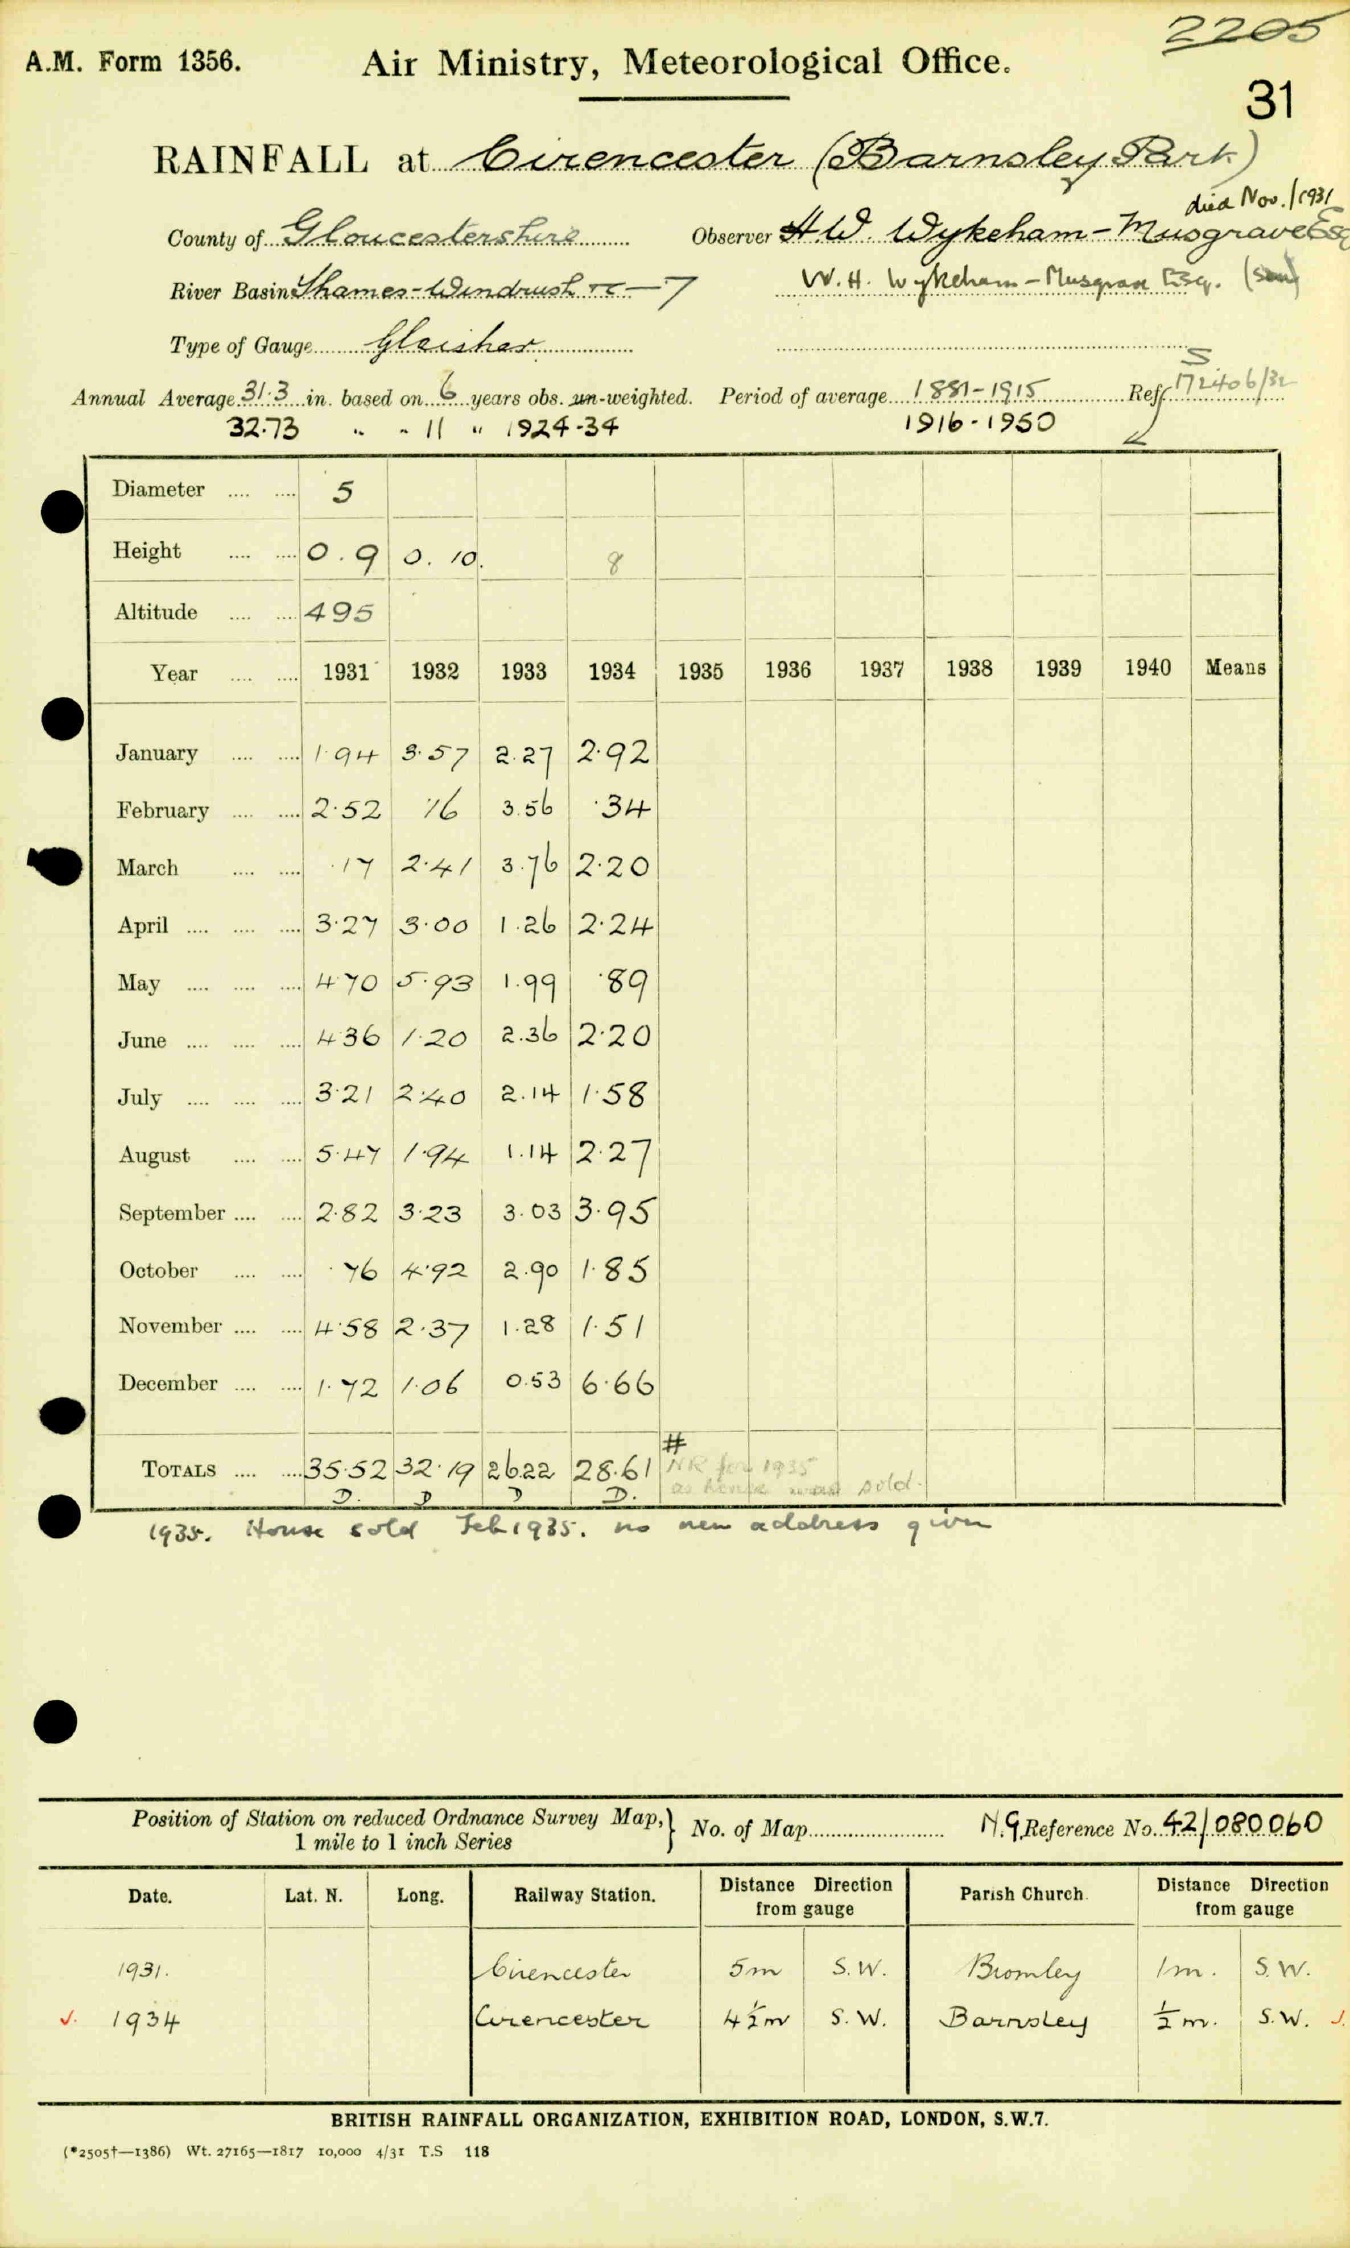 2205
A.M. Form 1356. Air Ministry, Meteorological Office.
31
RAINFALL at Cirencester (Barnsley Park)
died Nov./1931
County of Gloucestershire Observer H.W. Wykeham-Musgrave Esq
River Basin Thames-Windrush W.H. Wykeham-Musgrave Esq. (son)
Type of Gauge Glaisher
Annual Average 31.3 in. based on 6 years obs. un-weighted. Period of average 1881-1915 Ref. S 172406/32
32.73 " " 11 " 1924-34 1916-1950
Diameter .... .... 5
Height .... .... 0.9 0.10. 8
Altitude .... .... 495
Year .... .... 1931 1932 1933 1934 1935 1936 1937 1938 1939 1940 Means
January .... .... 1.94 3.57 2.27 2.92
February .... .... 2.52 .16 3.56 .34
March .... .... .17 2.41 3.76 2.20
April .... .... .... 3.27 3.00 1.26 2.24
May .... .... .... 4.70 5.93 1.99 .89
June .... .... .... 4.36 1.20 2.36 2.20
July .... .... .... 3.21 2.40 2.14 1.58
August .... .... 5.47 1.94 1.14 2.27
September .... .... 2.82 3.23 3.03 3.95
October .... .... .76 4.92 2.90 1.85
November .... .... 4.58 2.37 1.28 1.51
December .... .... 1.72 1.06 0.53 6.66
#
TOTALS .... .... 35.52 32.19 26.22 28.61 NR for 1935
D. D D D. as house was sold.
1935. House sold Feb 1935. no new address given
Position of Station on reduced Ordnance Survey Map, } No. of Map N.G. Reference No. 42/080060
1 mile to 1 inch Series
Date. Lat. N. Long. Railway Station. Distance Direction from gauge Parish Church. Distance Direction from gauge
1931. Cirencester 5m S.W. Bromley 1m. S.W.
1934 Cirencester 4½m S.W. Barnsley ½m. S.W.
BRITISH RAINFALL ORGANIZATION, EXHIBITION ROAD, LONDON, S.W.7.
(*2505†—1386) Wt. 27165—1817 10,000 4/31 T.S 118